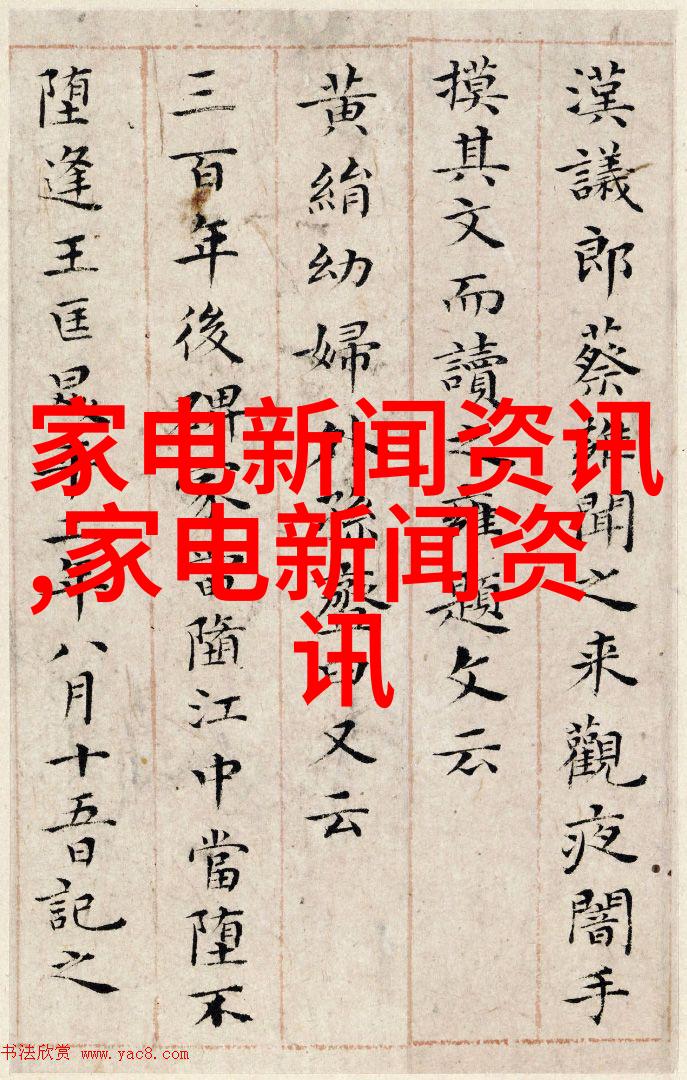 漢議郎蔡聞之来觀夜闇手
摸其文而讀之雍題文云
黄絹幼婦外孫臼又云
三百年後碑冢當墮江中當堕不
堕逢王匡二年八月十五日記之
家电新闻资讯
,家电新闻资
讯
书法欣赏 www.yac8.com